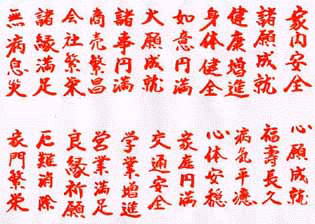 家内安全
諸願成就
健康増進
身体健全
如意円満
大願成就
諸事円満
商売繁昌
会社繁栄
諸縁満足
無病息災
心願成就
福壽長久
病氣平癒
心体安穏
家庭円満
交通安全
学業増進
営業満足
良縁祈願
厄難消除
家門繁栄